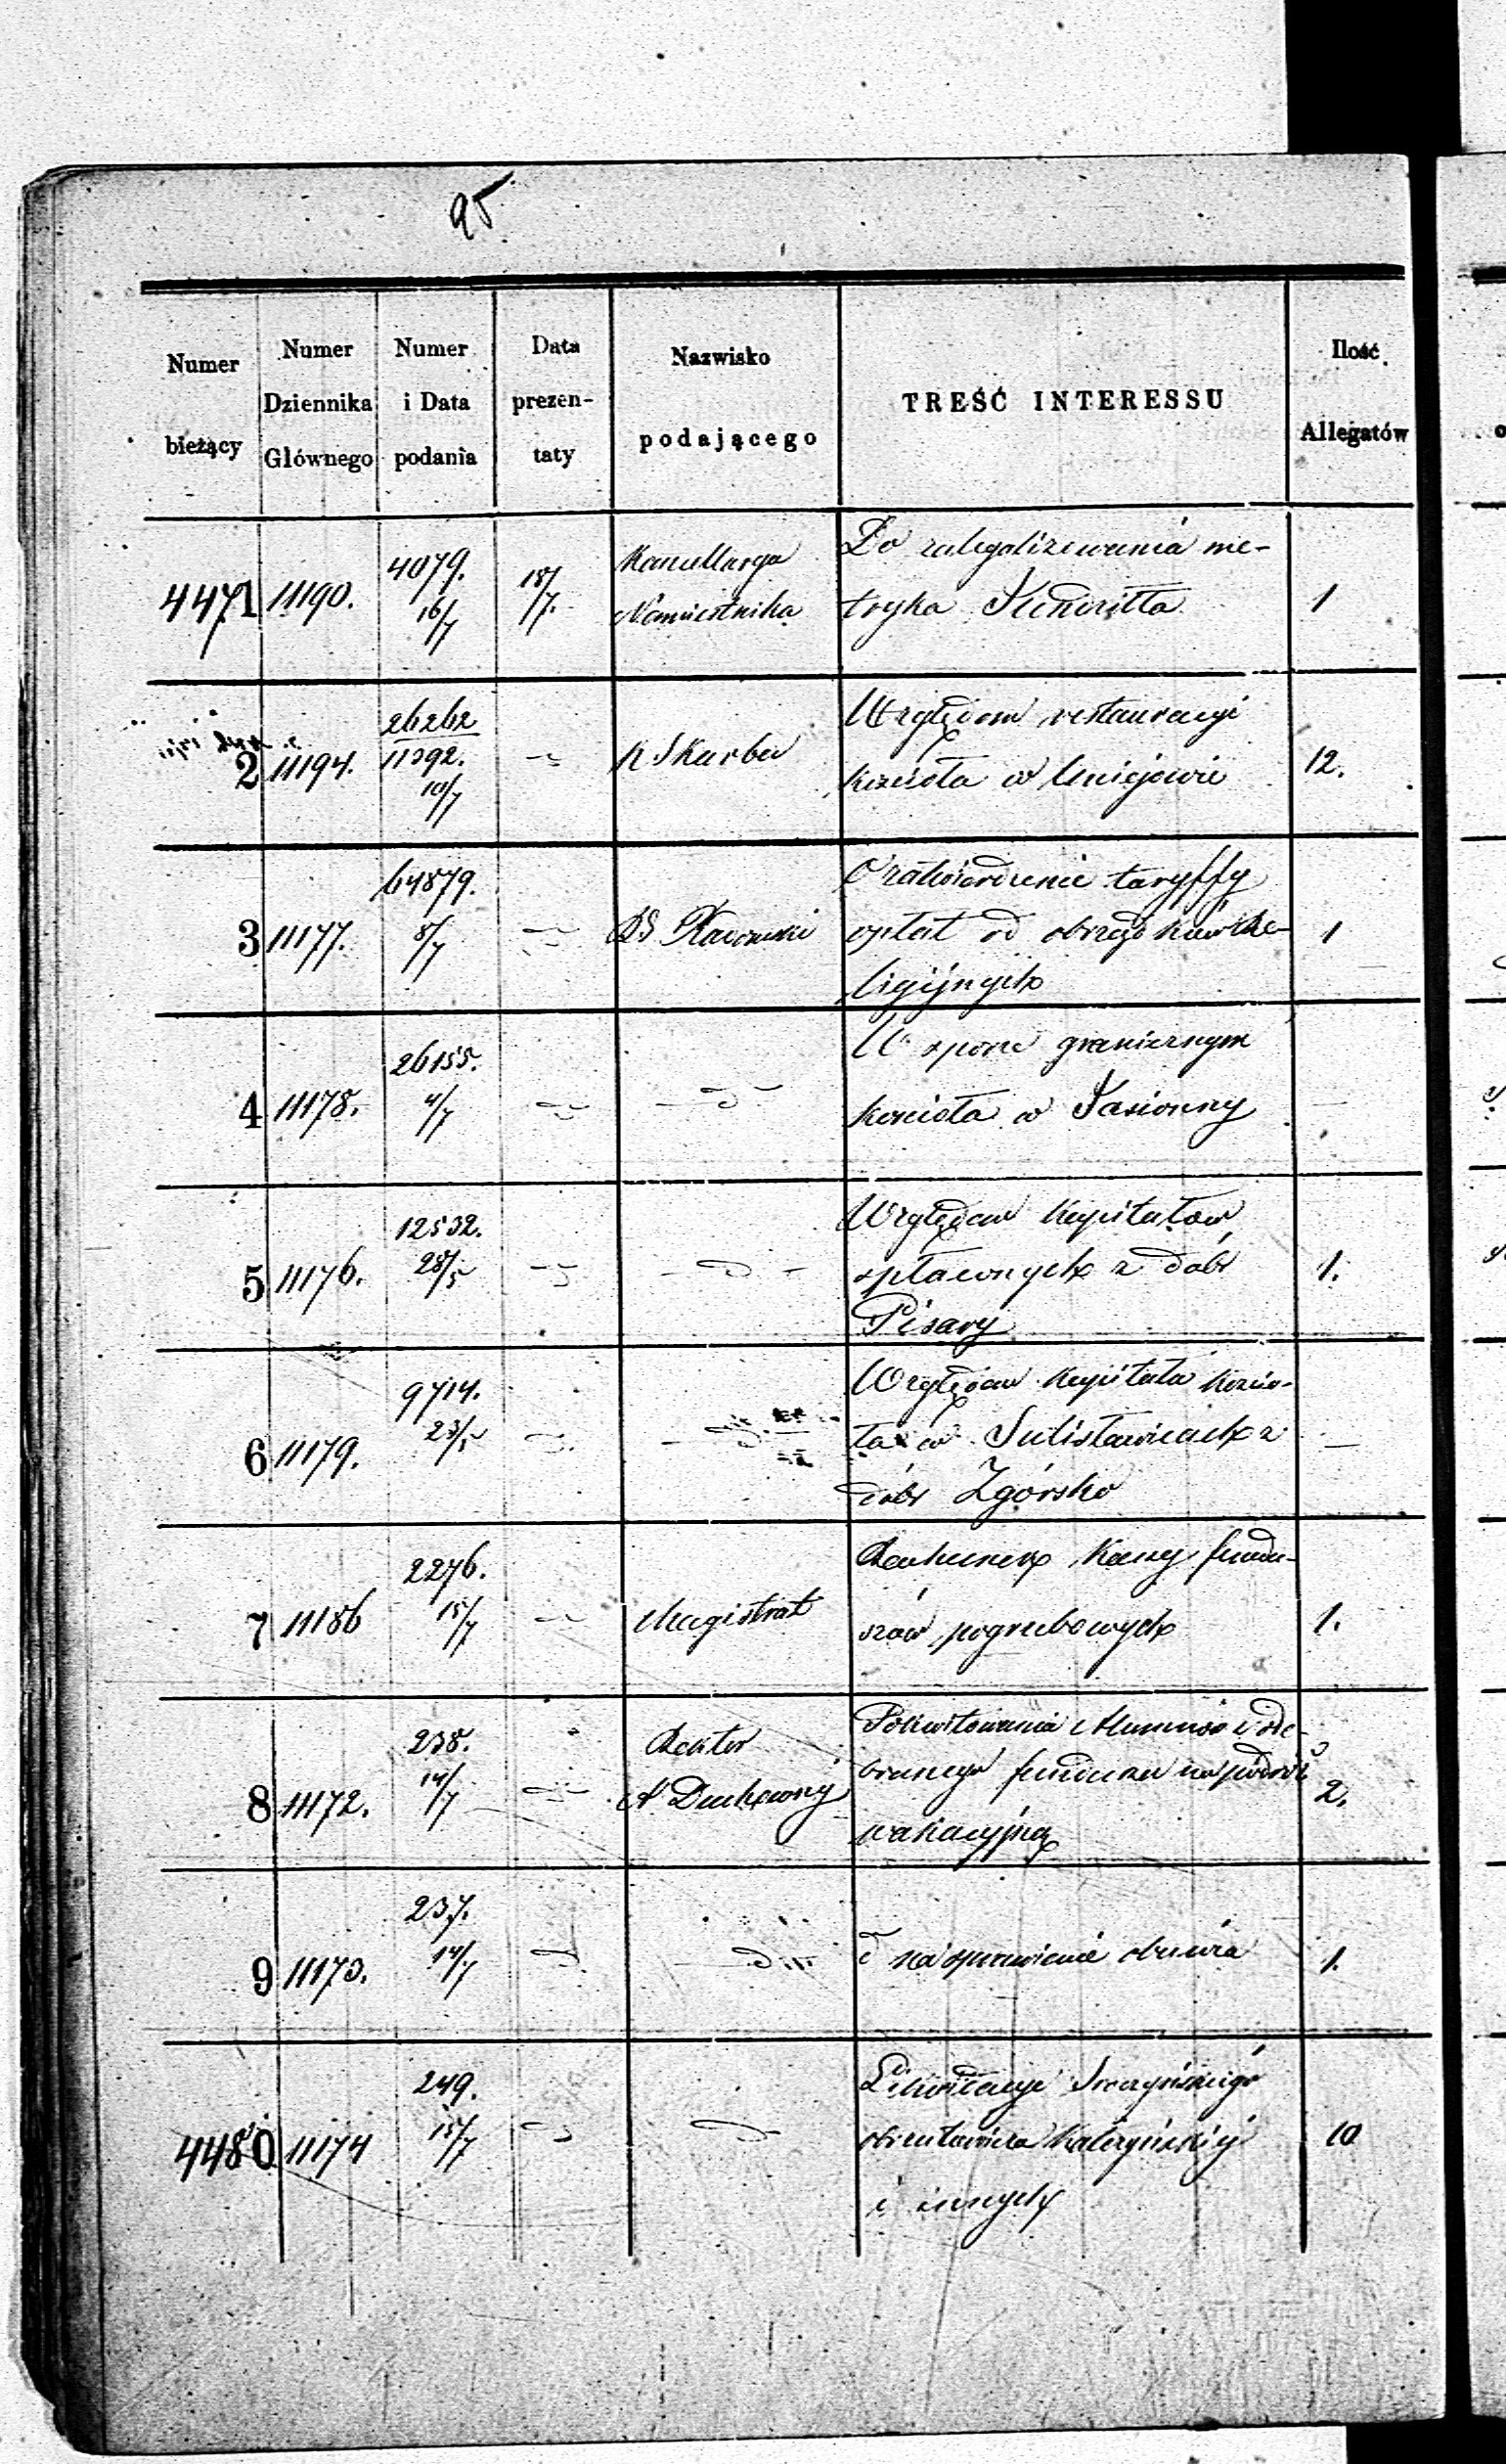 95
Numer bieżący
Numer Dziennika Głównego
Numer i Data podania
Data prezen-taty
Nazwisko podającego
TREŚĆ INTERESSU
Ilość Allegatów
4471 11190. 4079. 16/7 18/7. Kancellarya Namiestnika Do zalegalizowania me-
tryka 1
2 11194. 26262
11392. 10/7 K Skarbu Względem restauracyi
kościoła w Uniejowie 12.
3 11177. 64879. 8/7 O zatwierdzenie taryffy
opłat od obrzędków Re-
ligijnych 1
4 11178. 26155. 4/7 W sporze granicznym
kościoła w Jasionny
5 11176. 12532. 28/5 Względem kapitałów
spławnych z dóbr
Pisary 1.
6 11179. 9714. 23/5 Względem kapitała kościo-
ła w Sulisławicach z
dóbr Zgórsko
7 11186 2276. 15/7 Magistrat Rachunek Kassy fundu-
szów pogrzebowych 1.
8 11172. 238. 14/7 Rektor A Duchowny Pokwitowania Alumnów z ode-
branego funduszu na podróż
wakacyjną 2.
9 11173. 237. 14/7 d na sprawienie obuwia 1.
4480 11174 249. 15/7 Likwidacye
i innych 10